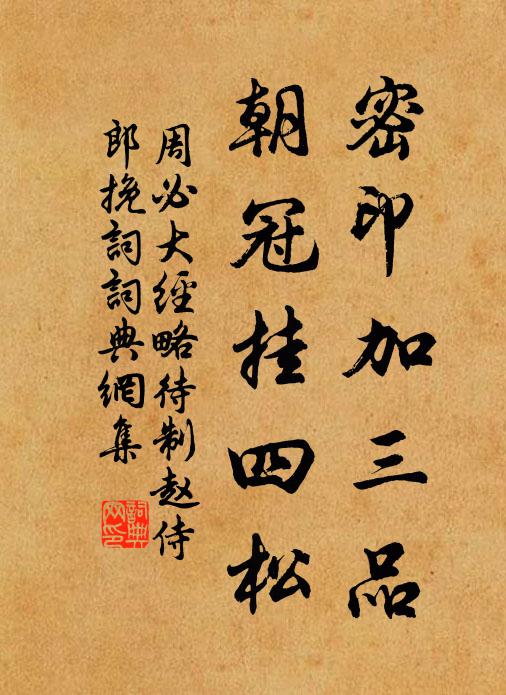 密印加三品
朝冠挂四松
周必大經略待制赵侍
郎挽詞詞典網集
詞典
网印